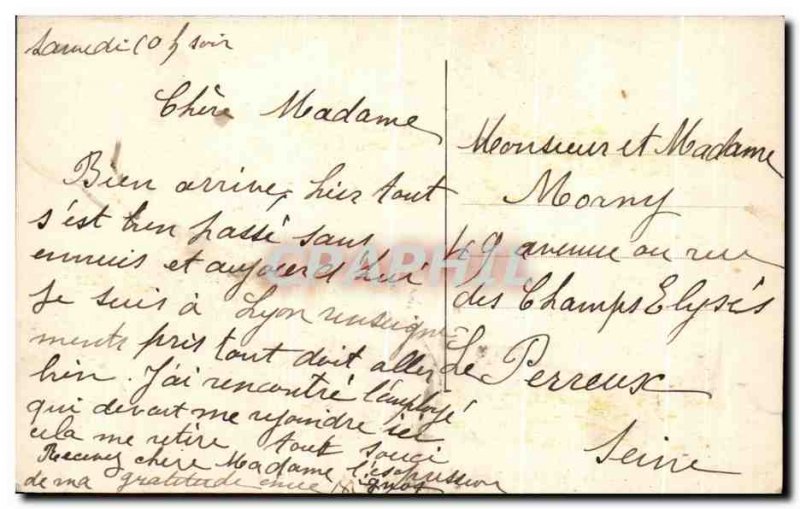 Samedi 10 h soir
Chère Madame
Bien arrivé, hier tout
s'est bien passé sans
ennuis et aujourd'hui
Je suis à Lyon renseigne
ments pris tout doit aller
bien. J'ai rencontré l'employé
qui devait me rejoindre ici
cela me retire tout souci
Recevez chère Madame l'expression
de ma gratitude
Monsieur et Madame
Morny
49 avenue ou rue
des Champs Elysés
Le Perreux
Seine
CPAPHIL